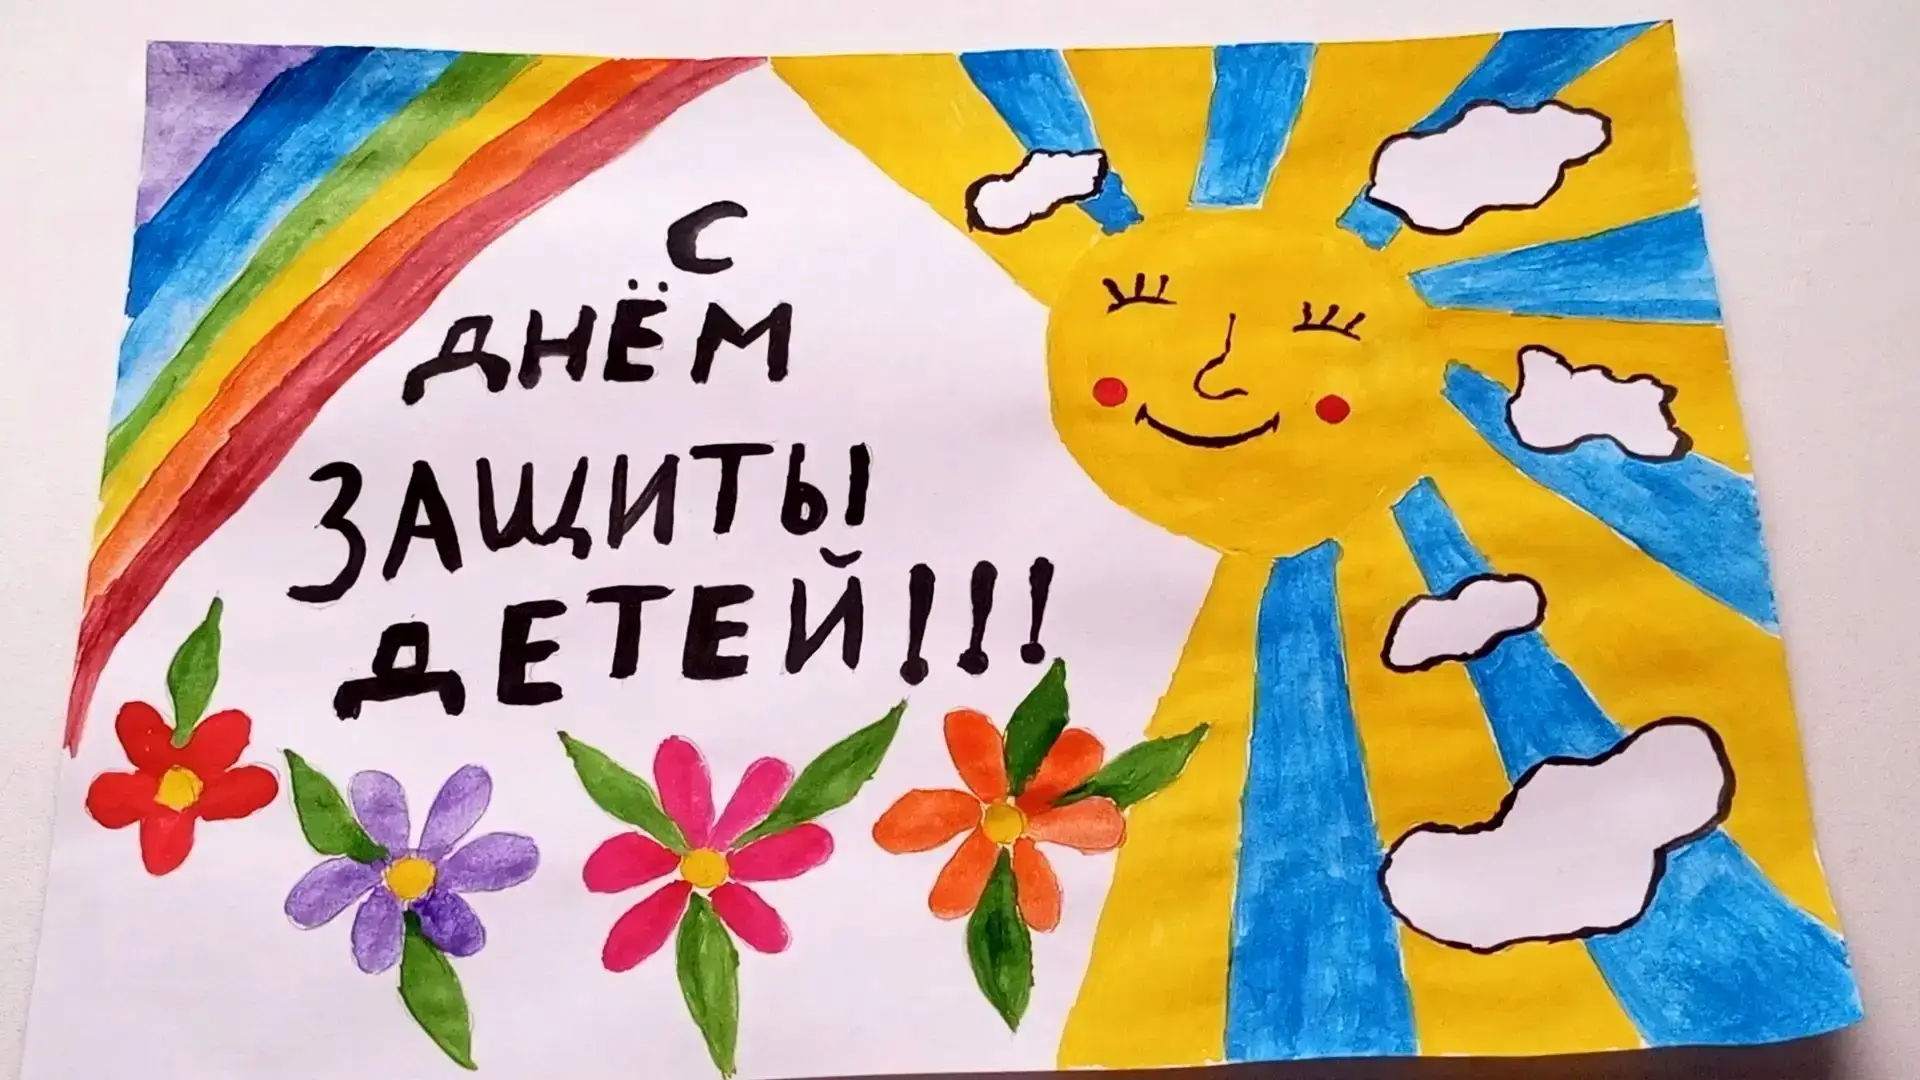 С
ДНЁМ
ЗАЩИТЫ
ДЕТЕЙ!!!